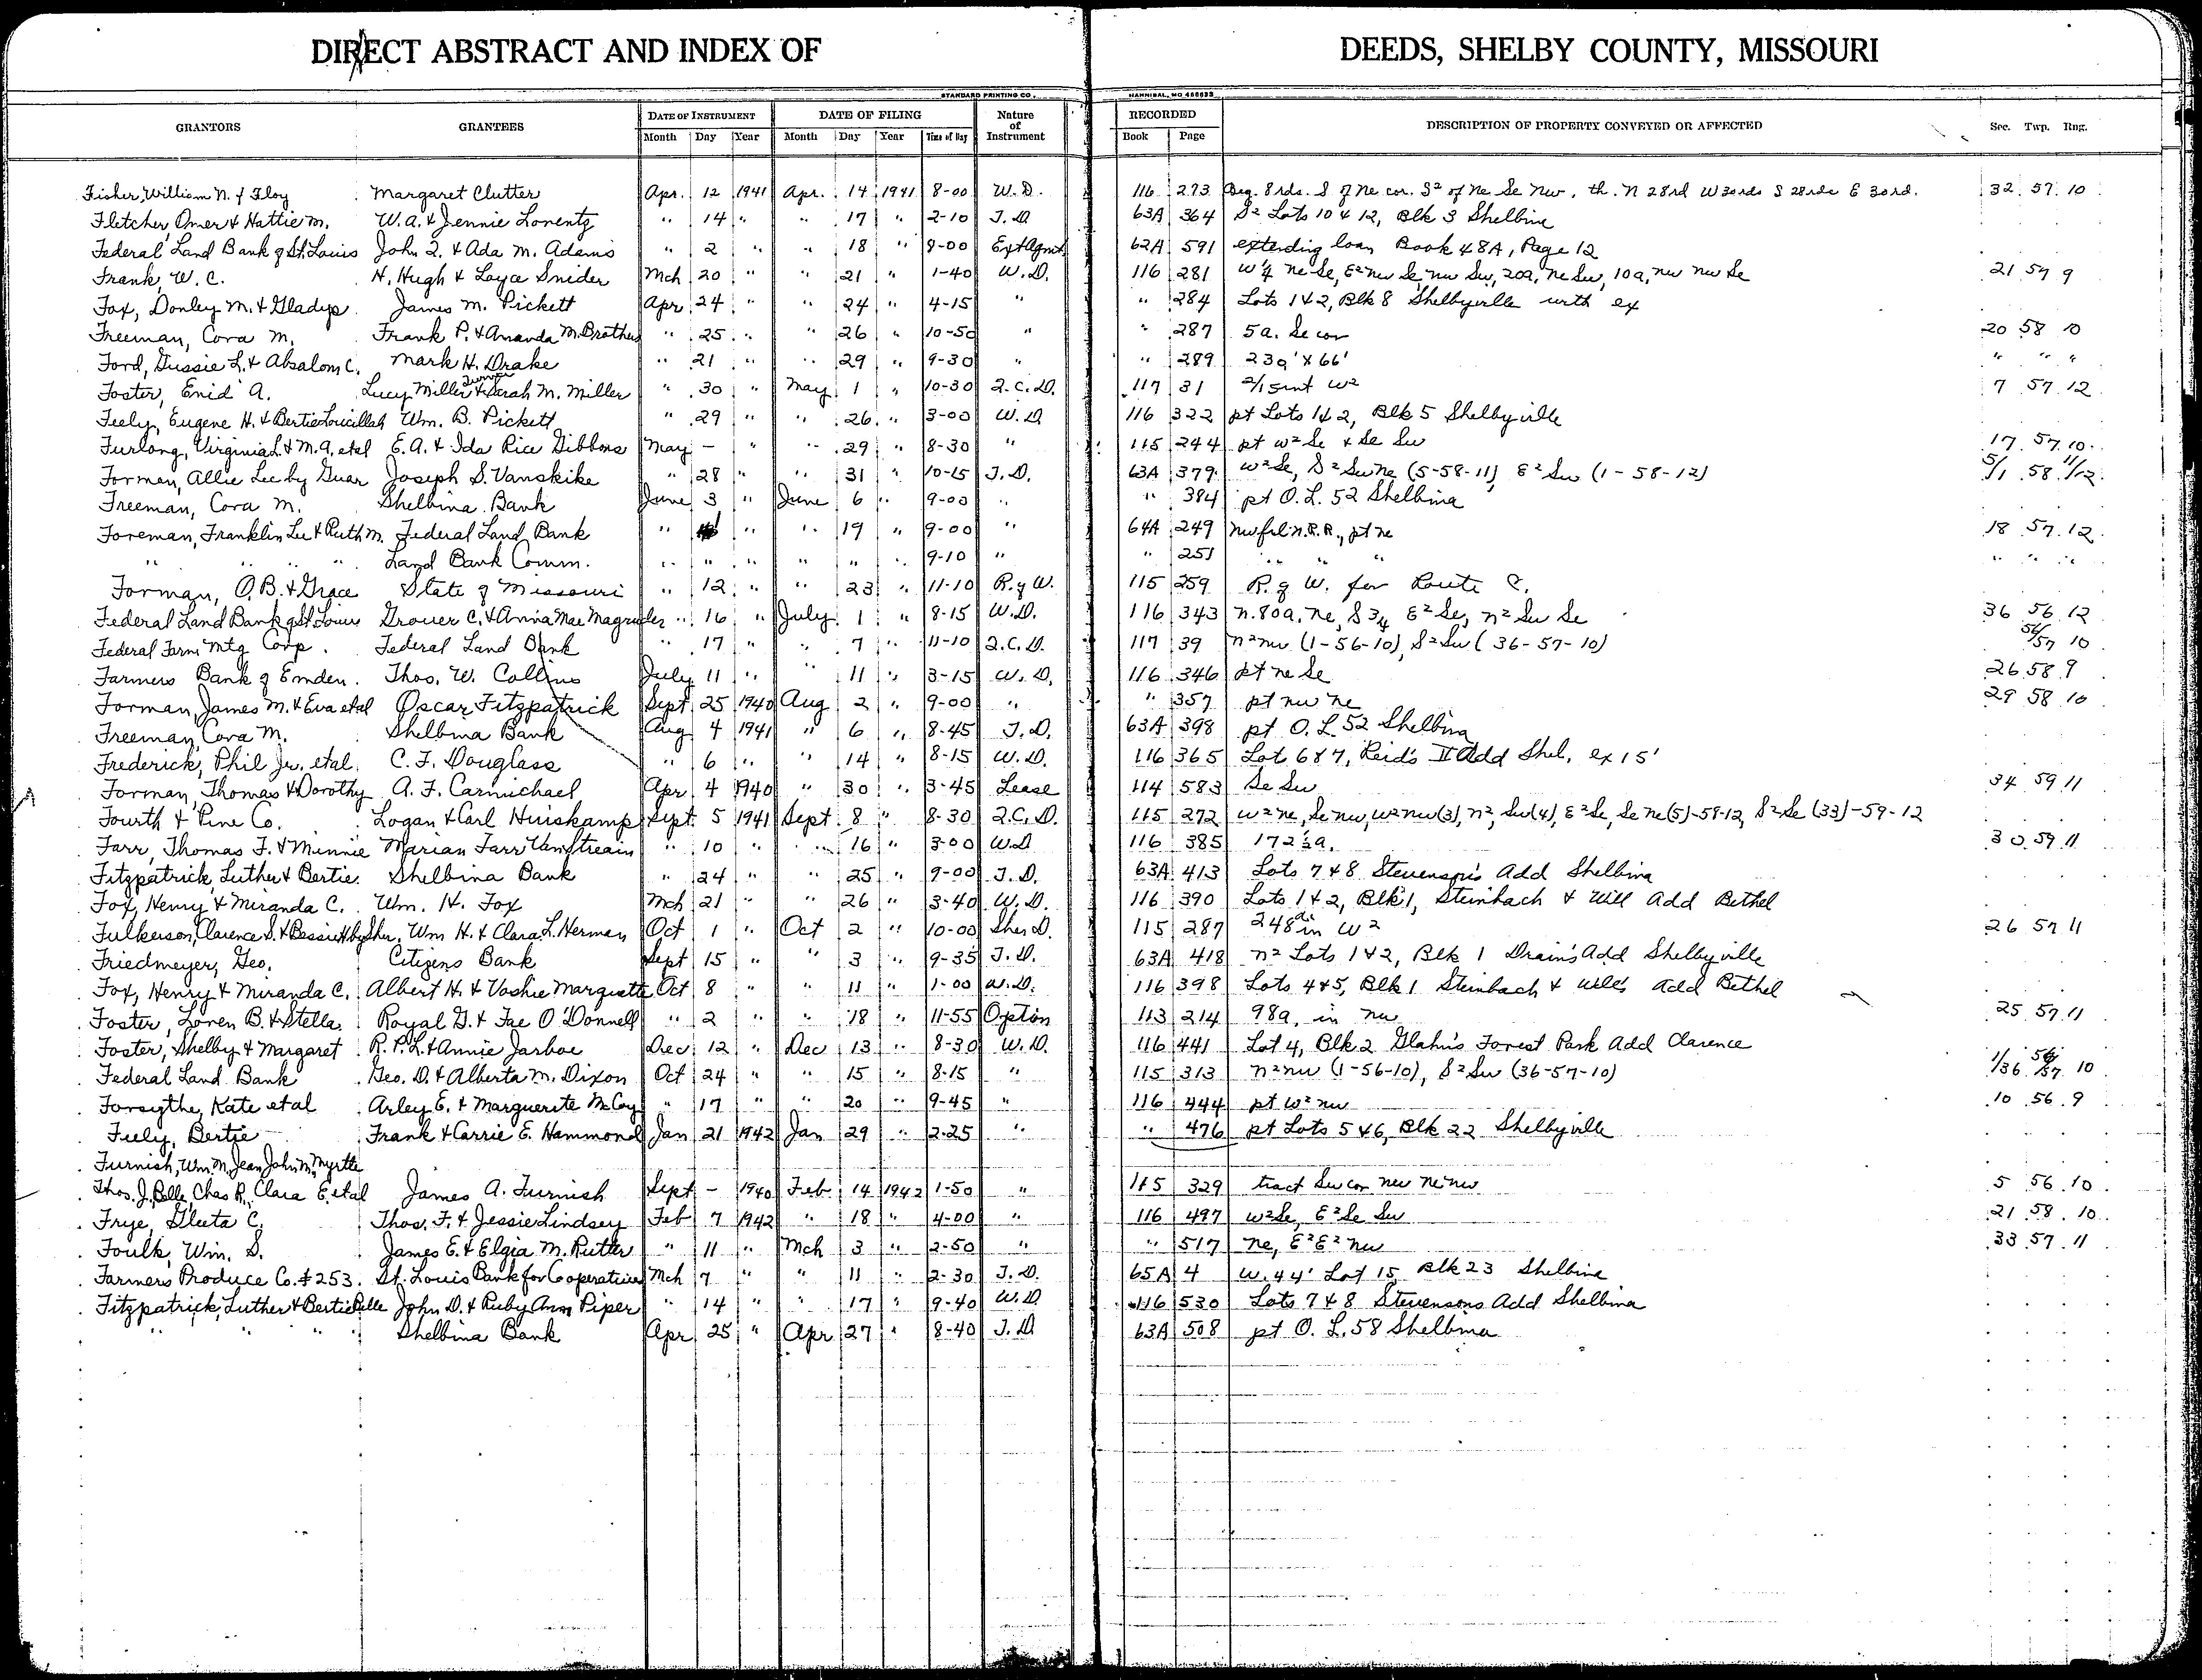 DIRECT ABSTRACT AND INDEX OF DEEDS, SHELBY COUNTY, MISSOURI
STANDARD PRINTING CO. HANNIBAL, MO
GRANTORS GRANTEES DATE OF INSTRUMENT DATE OF FILING Nature of Instrument RECORDED DESCRIPTION OF PROPERTY CONVEYED OR AFFECTED Sec. Twp. Rng.
Month Day Year Month Day Year Time of Day Book Page
Fisher, William N. & Floy Margaret Clutter Apr. 12 1941 Apr. 14 1941 8-00 W.D. 116 273 Beg. 8 rds. S of Ne cor. S2 of Ne Se Nw, th. N 28rd W 30rds S 28rds E 30rd. 32 57 10
Fletcher, Omer & Hattie M. W.A. & Jennie Lorentz " 14 " " 17 " 2-10 T.D. 63A 364 S2 Lots 10 & 12, Blk 3 Shelbina
Federal Land Bank of St. Louis John Q. & Ada M. Adams " 2 " " 18 " 9-00 Ext Agmt 62A 591 extending loan Book 48A, Page 12
Frank, W. C. H. Hugh & Loyce Snider Mch 20 " " 21 " 1-40 W.D. 116 281 W 1/4 Ne Se, E2 Nw Se, Nw Sw, 20a, Ne Sw, 10a, Nw Nw Se 21 57 9
Fox, Donley M. & Gladys James M. Pickett Apr 24 " " 24 " 4-15 " " 284 Lots 1 & 2, Blk 8 Shelbyville with ex
Freeman, Cora M. Frank P. & Amanda M. Brothers " 25 " " 26 " 10-50 " " 287 5a. Se cor 20 58 10
Ford, Gussie L. & Absalom C. Mark H. Drake " 21 " " 29 " 9-30 " " 289 239' X 66' " " "
Foster, Enid A. Lucy Miller Turner & Sarah M. Miller " 30 " May 1 " 10-30 Q.C.D. 117 31 2/15 int W2 7 57 12
Feely, Eugene H. & Bertie Loucillah Wm. B. Pickett " 29 " " 26 " 3-00 W.D. 116 322 pt Lots 1 & 2, Blk 5 Shelbyville
Furlong, Virginia L. & M.A. etal E.A. & Ida Rice Gibbons May - " " 29 " 8-30 " 115 244 pt W2 Se & Se Sw 17 57 10
Forman, Allie Lee by Guar Joseph S. Vanskike " 28 " " 31 " 10-15 T.D. 63A 379 W2 Se, S2 Sw Ne (5-58-11) E2 Sw (1-58-12) 5/1 58 11/12
Freeman, Cora M. Shelbina Bank June 3 " June 6 " 9-00 " " 384 pt O.L. 52 Shelbina
Foreman, Franklin Lee & Ruth M. Federal Land Bank " " " 19 " 9-00 " 64A 249 Nw frl N.R.R., pt Ne 18 57 12
" " " " Land Bank Comm. " " " " " " 9-10 " " 251 " " " " " "
Forman, O.B. & Grace State of Missouri " 12 " " 23 " 11-10 R. of W. 115 259 R. of W. for Route C.
Federal Land Bank of St. Louis Grover C. & Anna Mae Magruder " 16 " July 1 " 8-15 W.D. 116 343 N. 80a. Ne, S 3/4 E2 Se, N2 Sw Se 36 56 12
Federal Farm Mtg Corp. Federal Land Bank " 17 " " 7 " 11-10 Q.C.D. 117 39 N2 Nw (1-56-10), S2 Sw (36-57-10) 56/57 10
Farmers Bank of Emden. Thos. W. Collins July 11 " " 11 " 3-15 W.D. 116 346 pt Ne Se 26 58 9
Forman, James M. & Eva etal Oscar Fitzpatrick Sept 25 1940 Aug 2 " 9-00 " " 357 pt Nw Ne 29 58 10
Freeman, Cora M. Shelbina Bank Aug 4 1941 " 6 " 8-45 T.D. 63A 398 pt O.L. 52 Shelbina
Frederick, Phil Jr. etal C. F. Douglass " 6 " " 14 " 8-15 W.D. 116 365 Lot 6 & 7, Reid's II Add Shel. ex 15'
Forman, Thomas & Dorothy A. F. Carmichael Apr 4 1940 " 30 " 3-45 Lease 114 583 Se Sw 34 59 11
Fourth & Pine Co. Logan & Carl Huiskamp Sept. 5 1941 Sept 8 " 8-30 Q.C.D. 115 272 W2 Ne, Se Nw, W2 Nw (3), N2, Sw (4), E2 Se, Se Ne (5)-58-12, S2 Se (33)-59-12
Farr, Thomas F. & Minnie Marian Farr VanStreain " 10 " " 16 " 3-00 W.D 116 385 172 1/2 a. 30 59 11
Fitzpatrick, Luther & Bertie. Shelbina Bank " 24 " " 25 " 9-00 T.D. 63A 413 Lots 7 & 8 Stevenson's Add Shelbina
Fox, Henry & Miranda C. Wm. H. Fox Mch 21 " " 26 " 3-40 W.D. 116 390 Lots 1 & 2, Blk 1, Steinbach & Will Add Bethel
Fulkerson, Clarence S. & Bessie H by Sher. Wm H. & Clara L. Herman Oct 1 " Oct 2 " 10-00 Sher D. 115 287 248a in W2 26 57 11
Friedmeyer, Geo. Citizens Bank Sept 15 " " 3 " 9-35 T.D. 63A 418 N2 Lots 1 & 2, Blk 1 Drain's Add Shelbyville
Fox, Henry & Miranda C. Albert H. & Vashie Marquette Oct 8 " " 11 " 1-00 W.D. 116 398 Lots 4 & 5, Blk 1 Steinbach & Wills Add Bethel
Foster, Loren B. & Stella. Royal G. & Fae O'Donnell " 2 " " 18 " 11-55 Option 113 214 98a. in Nw 25 57 11
Foster, Shelby & Margaret R.P.L. & Annie Jarboe Dec 12 " Dec 13 " 8-30 W.D. 116 441 Lot 4, Blk 2 Glahn's Forest Park Add Clarence
Federal Land Bank Geo. D. & Alberta M. Dixon Oct 24 " " 15 " 8-15 " 115 313 N2 Nw (1-56-10), S2 Sw (36-57-10) 1/36 56/57 10
Forsythe, Kate etal Arley E. & Marguerite McCoy " 17 " " 20 " 9-45 " 116 444 pt W2 Nw 10 56 9
Feely, Bertie Frank & Carrie E. Hammond Jan 21 1942 Jan 29 " 2-25 " " 476 pt Lots 5 & 6, Blk 22 Shelbyville
Furnish, Wm. M, Jean, John M, Myrtle
Thos. J, Belle, Chas R, Clara E. etal James A. Furnish Sept - 1940 Feb 14 1942 1-50 " 115 329 tract Sw cor Nw Ne Nw 5 56 10
Frye, Gleeta C. Thos. F. & Jessie Lindsey Feb 7 1942 " 18 " 4-00 " 116 497 W2 Se, E2 Se Sw 21 58 10
Foulk, Wm. S. James E. & Elgia M. Rutter " 11 " Mch 3 " 2-50 " " 517 Ne, E2 E2 Nw 33 57 11
Farmers Produce Co. #253. St. Louis Bank for Cooperatives Mch 7 " " 11 " 2-30 T.D. 65A 4 W. 44' Lot 15, Blk 23 Shelbina
Fitzpatrick, Luther & Bertie Belle John D. & Ruby Ann Piper " 14 " " 17 " 9-40 W.D. 116 530 Lots 7 & 8 Stevensons Add Shelbina
" " " Shelbina Bank Apr 25 " Apr 27 " 8-40 T.D 63A 508 pt O.L. 58 Shelbina